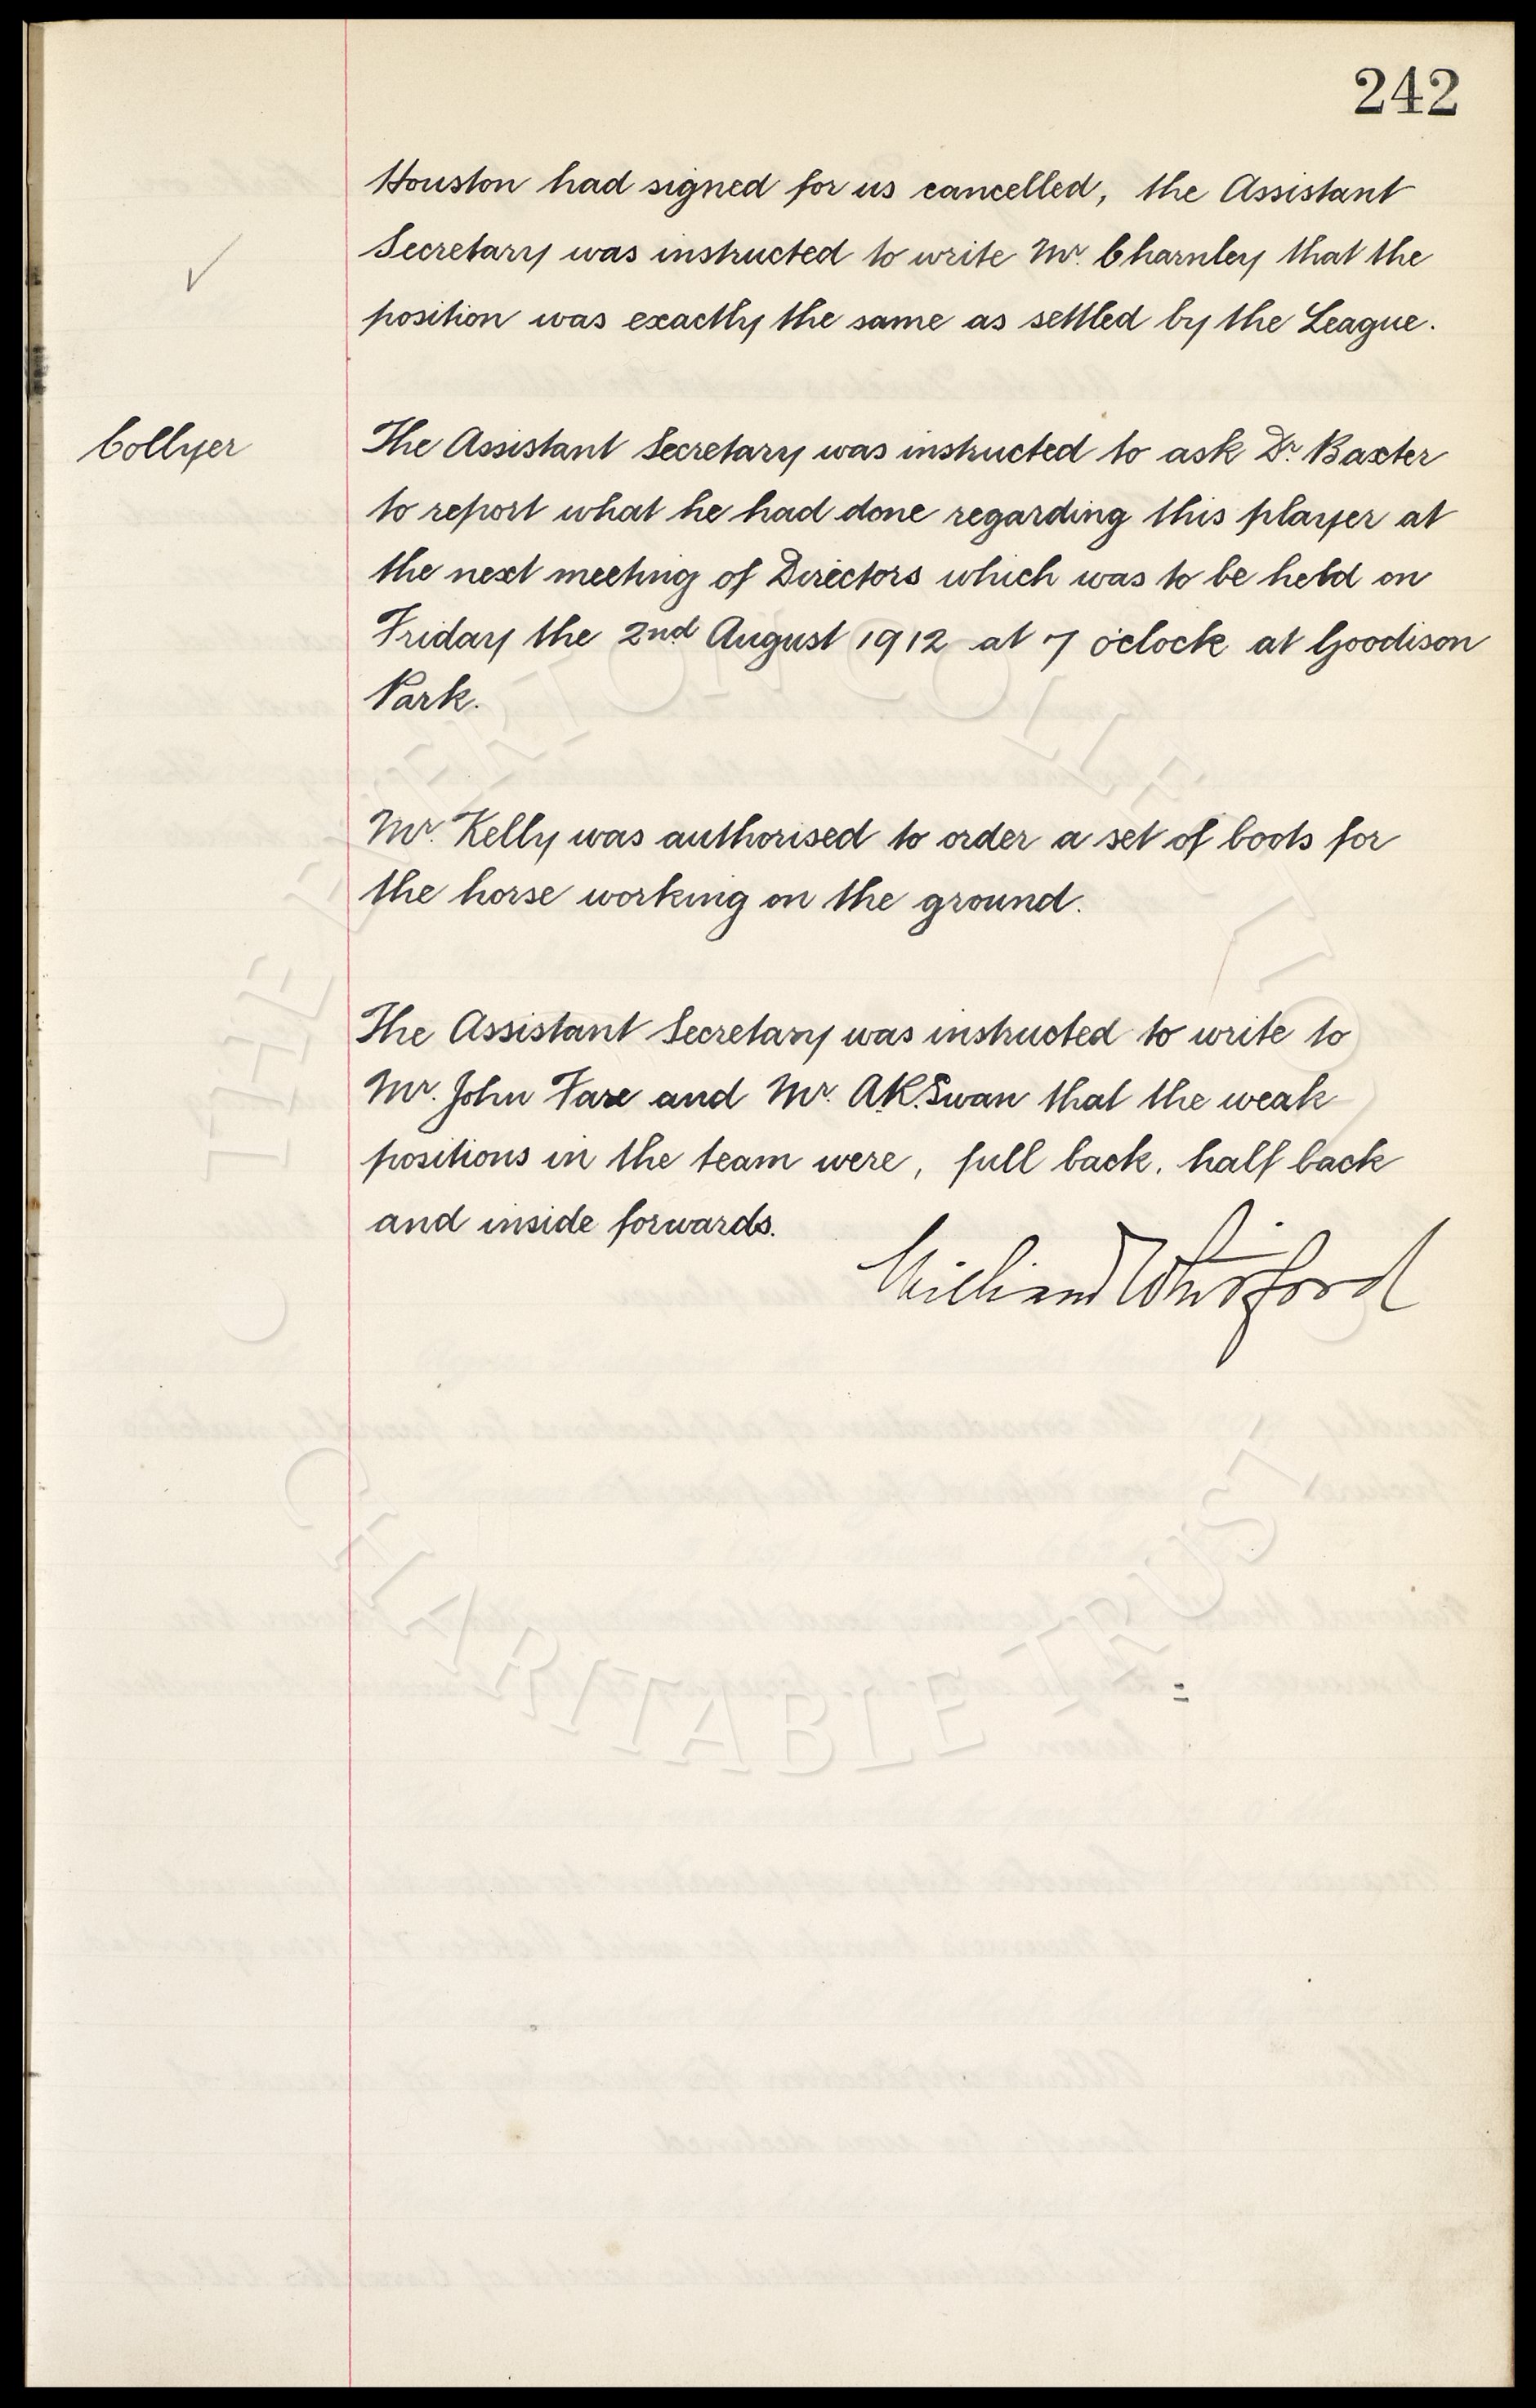 242
Houston had signed for us cancelled, the Assistant
Secretary was instructed to write Mr. Charnley that the
position was exactly the same as settled by the League.
Collyer
The Assistant Secretary was instructed to ask Dr. Baxter
to report what he had done regarding this player at
the next meeting of Directors which was to be held on
Friday the 2nd August 1912 at 7 o'clock at Goodison
Park.
Mr. Kelly was authorised to order a set of boots for
the horse working on the ground.
The Assistant Secretary was instructed to write to
Mr. John Fare and Mr. A.K. Swan that the weak
positions in the team were, full back, half back
and inside forwards.
William Whitford
THE EVERTON COLLECTION
CHARITABLE TRUST